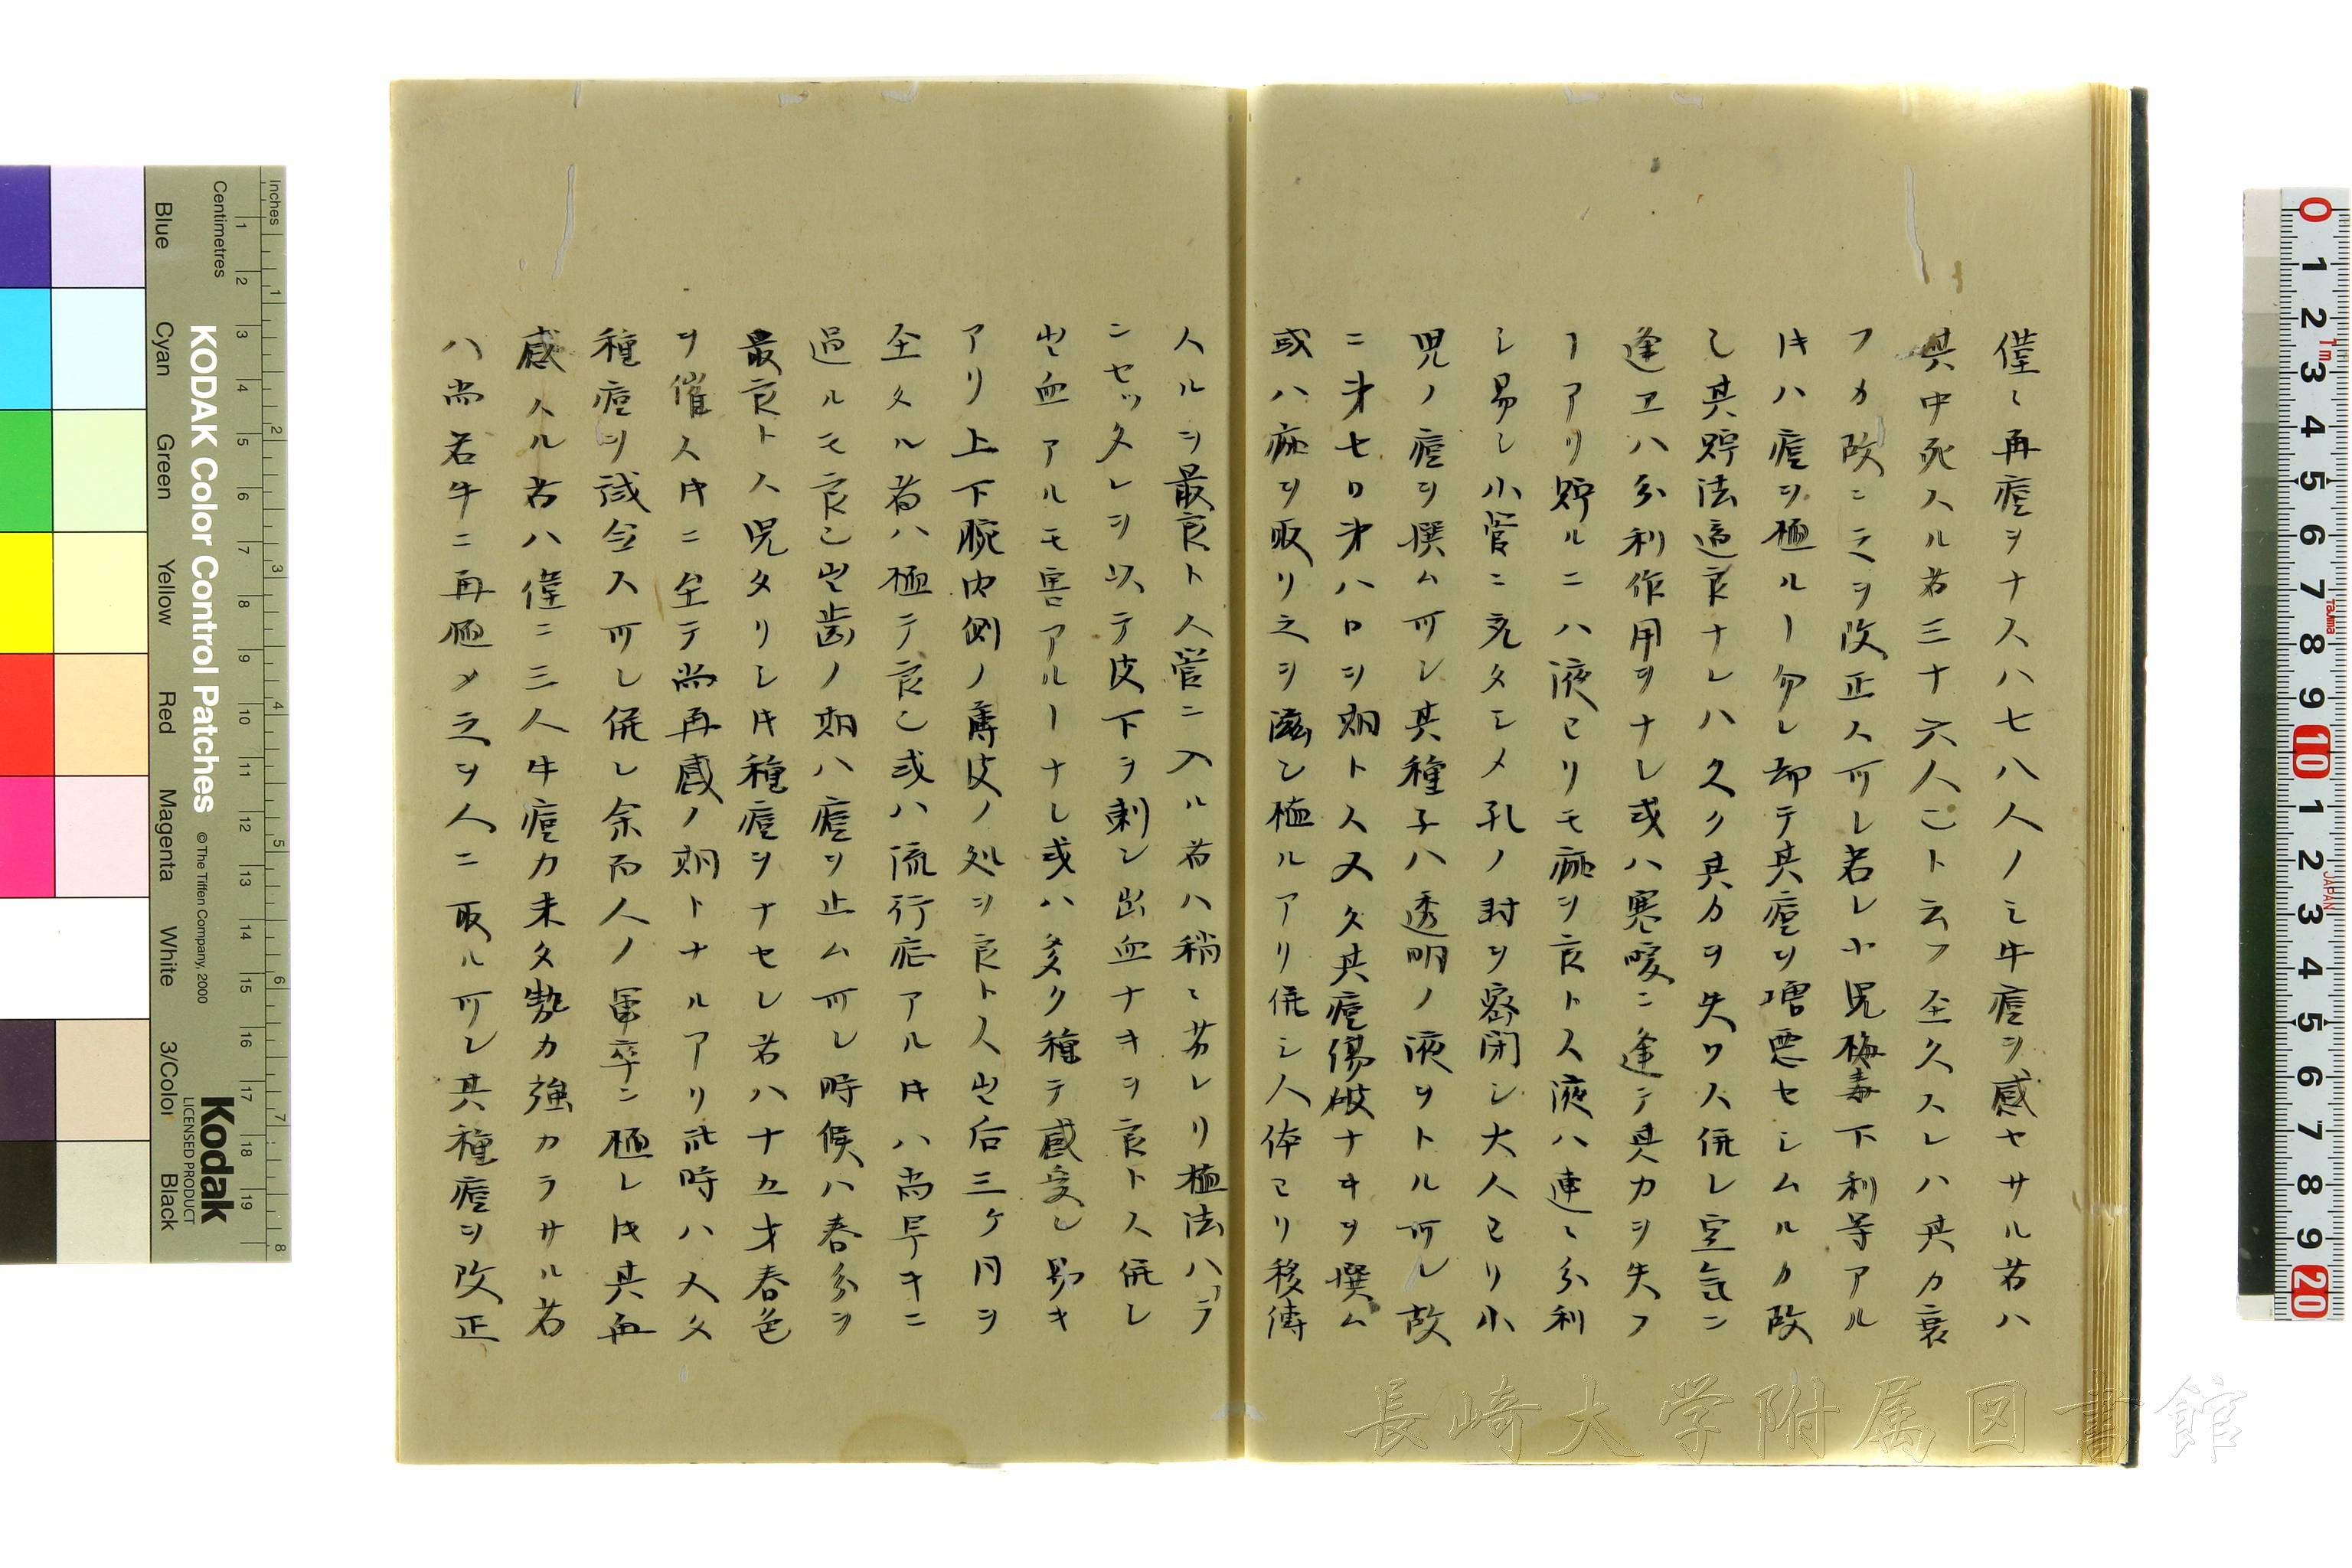 僅々再痘ヲナス八七八人ノミ牛痘ヲ感セサル者ハ
其中死スル者三十六人ニト云フ至久スレハ其力衰
フカ故ニ之ヲ改正スヘシ若シ小児梅毒下利等アル
片ハ痘ヲ種ルヿ勿レ却テ其痘ヲ増悪セシムルカ故
し其貯法適良ナレハ久ク其力ヲ失ワス併シ空気ニ
逢ヱハ分利作用ヲナシ或ハ寒暖ニ逢テ其力ヲ失フ
ヿアリ貯ルニハ液ヨリモ痂ヲ良トス液ハ速々分利
シ易シ小管ニ充タシメ孔ノ封ヲ密閉シ大人ヨリ小
児ノ痘ヲ撰ム可シ其種子ハ透明ノ液ヲトル可シ故
ニ才七日才八日ヲ期トス又タ其痘傷破ナキヲ撰ム
或ハ痂ヲ取リ之ヲ滋シ種ルアリ併シ人体ヨリ移傳
スルヲ最良トス管ニ入ル者ハ稍々劣レリ種法ハラ
ンセッタレヲ以テ皮下ヲ刺シ出血ナキヲ良トス併シ
出血アルモ害アルヿナシ或ハ多ク種テ感受シ易キ
アリ上下腕内側ノ薄皮ノ処ヲ良トス出后三ケ月ヲ
至タル者ハ極テ良し或ハ流行症アル片ハ尚早キニ
過ルモ良し出歯ノ期ハ痘ヲ止ム可シ時候ハ春分ヲ
最良トス児タリシ片種痘ヲナセシ者ハ十五才春色
ヲ催ス片ニ至テ尚再感ノ期トナルアリ此時ハ又タ
種痘ヲ試会ス可シ併シ余而人ノ軍卒ニ種シ片其再
感スル者ハ僅ニ三人牛痘力未タ勢力強カラサル者
ハ尚若牛ニ再種メ之ヲ人ニ取ル可シ其種痘ヲ改正
KODAK Color Control Patches
© The Tiffen Company, 2000
Kodak
LICENSED PRODUCT
Inches
Centimetres
Blue
Cyan
Green
Yellow
Red
Magenta
White
3/Color
Black
長崎大学附属図書館